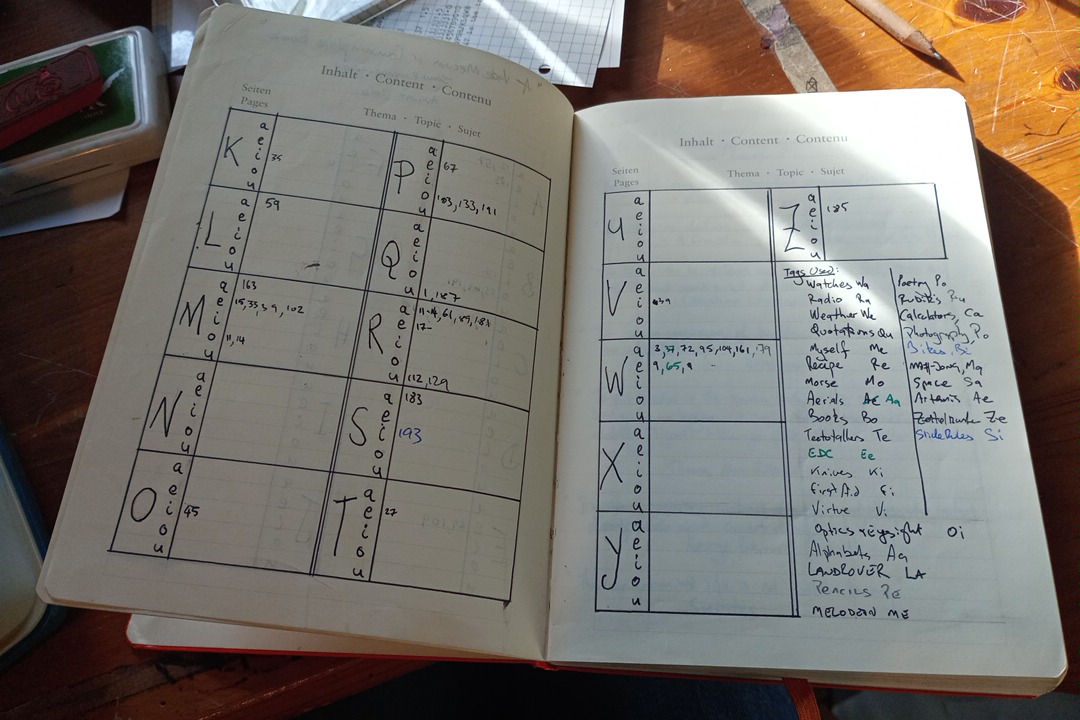 Inhalt · Content · Contenu
Seiten
Pages
Thema · Topic · Sujet
K
a
e
i 35
o
u
P
a
e 67
i
o
u 103, 133, 191
L
a 59
e
i
o
u
Q
a
e
i
o
u 1, 187
M
a 163
e 15, 33, 39, 102
i
o 11, 14
u
R
a
e
i 17-
o
u 112, 129
N
a
e
i
o
u
S
a 183
e
i 193
o
u
O
a
e
i 45
o
u
T
a
e 27
i
o
u
Inhalt · Content · Contenu
Seiten
Pages
Thema · Topic · Sujet
U
a
e
i
o
u
Z
a
e 185
i
o
u
V
a
e
i 139
o
u
W
a 3, 37, 72, 95, 104, 161, 179
e 9, 65, 9
i
o
u
X
a
e
i
o
u
Y
a
e
i
o
u
Tags Used:
Watches Wa
Radio Ra
Weather We
Quotations Qu
Myself Me
Recipe Re
Morse Mo
Aerials Ae Aa
Books Bo
Teetotallers Te
EDC Ee
Knives Ki
First Aid Fi
Virtue Vi
Optics & eyesight Oi
Alphabets Aa
LANDROVER LA
Pencils PE
MELODEON ME
Poetry Po
Rubik's Ru
Calculators, Ca
Photography, Po
Bikes, Bi
MAH-JONG, Ma
Space Sa
Artemis Ae
Ze
Slide Rules Si